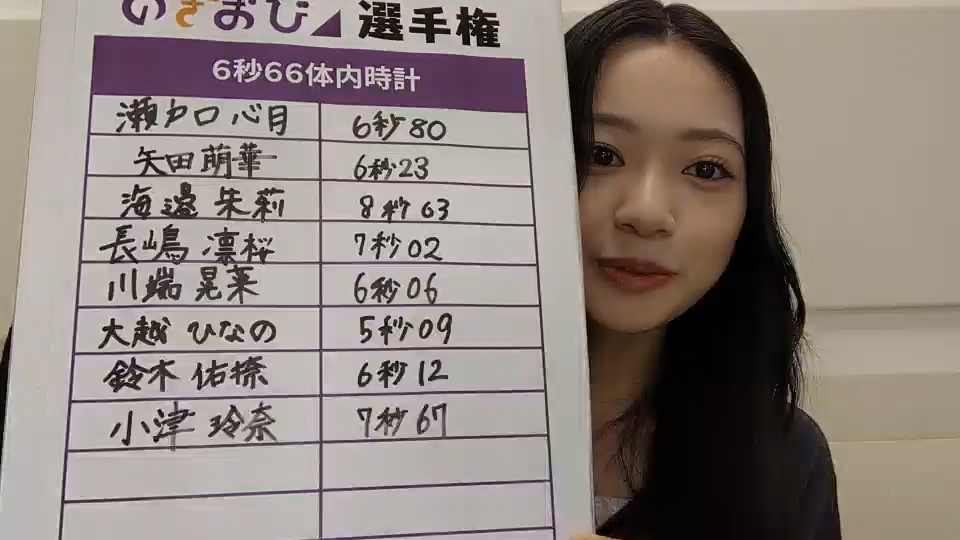 いぎおび 選手権
6秒66体内時計
瀬カロ 心月 6秒80
矢田 萌華 6秒23
海邉 朱莉 8秒63
長嶋 凛桜 7秒02
川端 晃菜 6秒06
大越 ひなの 5秒09
鈴木 佑捺 6秒12
小津 玲奈 7秒67